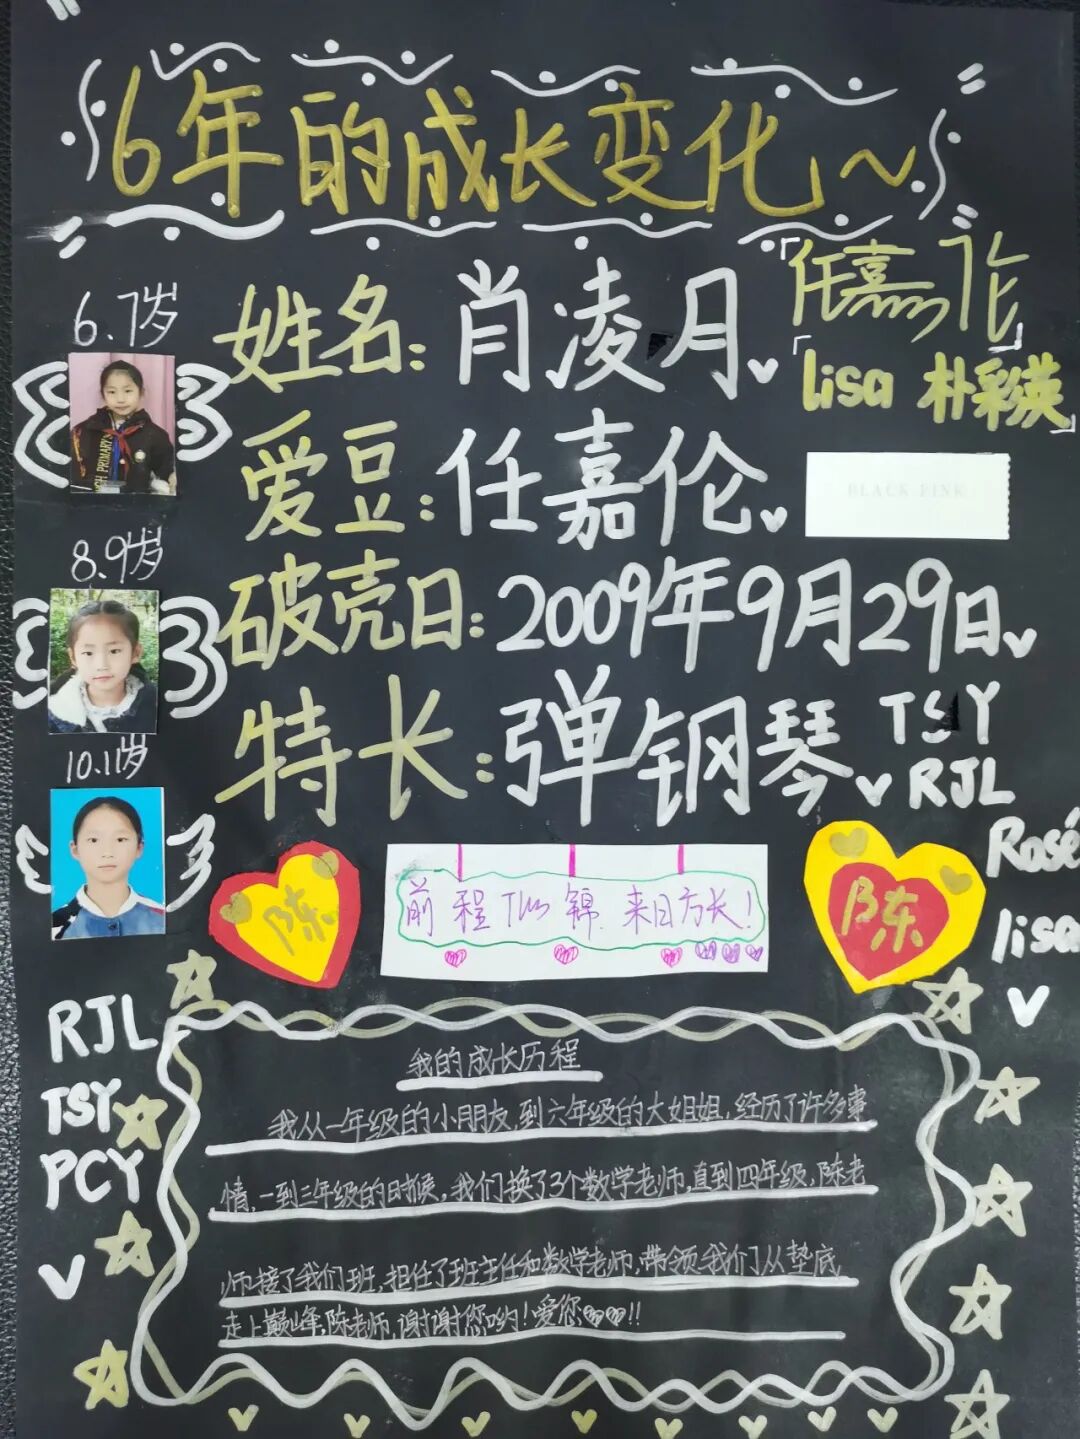 6年的成长变化~
「任嘉伦」
6.7岁
姓名：肖凌月
「lisa 朴彩英」
爱豆：任嘉伦
BLACK PINK
8.9岁
破壳日：2009年9月29日
特长：弹钢琴
TSY
RJL
10.11岁
Rosé
lisa
陈
前程似锦.来日方长!
陈
RJL
TSY
PCY
我的成长历程
我从一年级的小朋友,到六年级的大姐姐,经历了许多事
情,一到三年级的时候,我们换了3个数学老师,直到四年级,陈老
师接了我们班,担任了班主任和数学老师,带领我们从垫底,
走上巅峰,陈老师,谢谢您哟!爱您!!